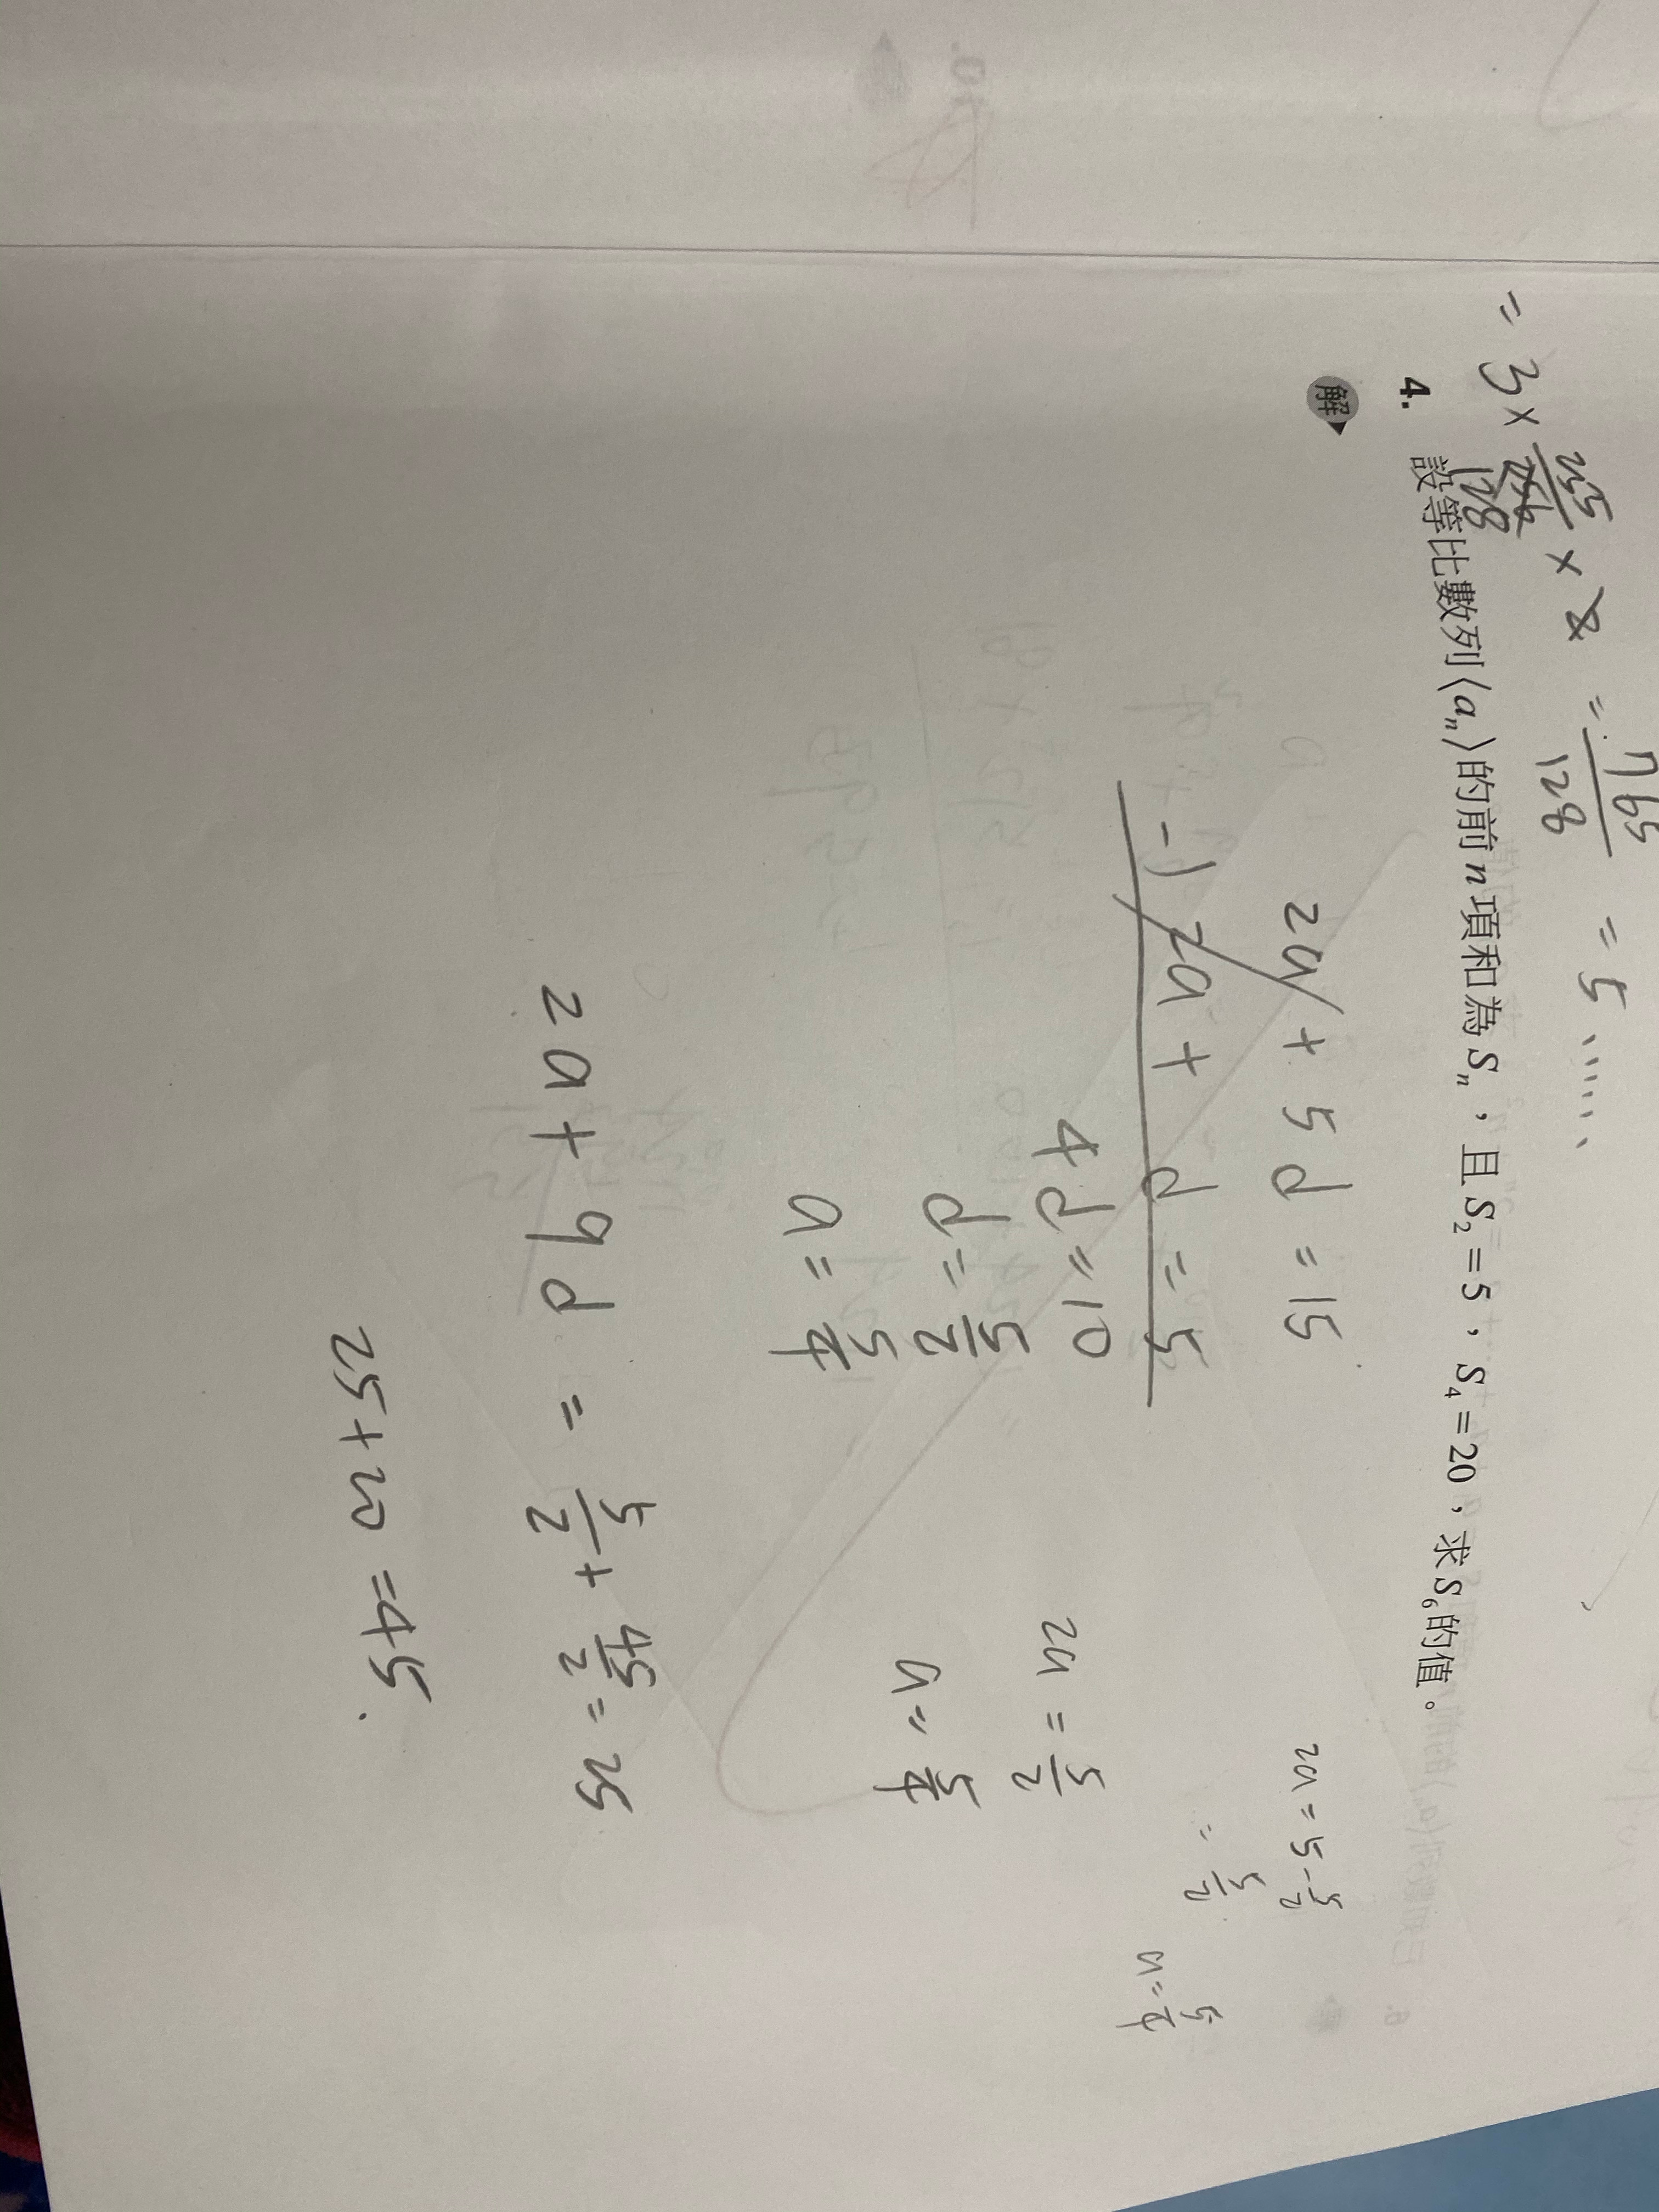 = 3 × 255/128 × 2 = 765/128 = 5......
4. 設等比數列⟨aₙ⟩的前 n 項和為 Sₙ，且 S₂ = 5，S₄ = 20，求 S₆ 的值。
解
2a + 5d = 15
-) 2a + d = 5
4d = 10
d = 5/2
a = 5/4
2a = 15 - 5/2
= 5/2
a = 5/4
2a = 5/2
a = 5/4
2a + 9d = 5/2 + 45/2 = 25
25 + 20 = 45.